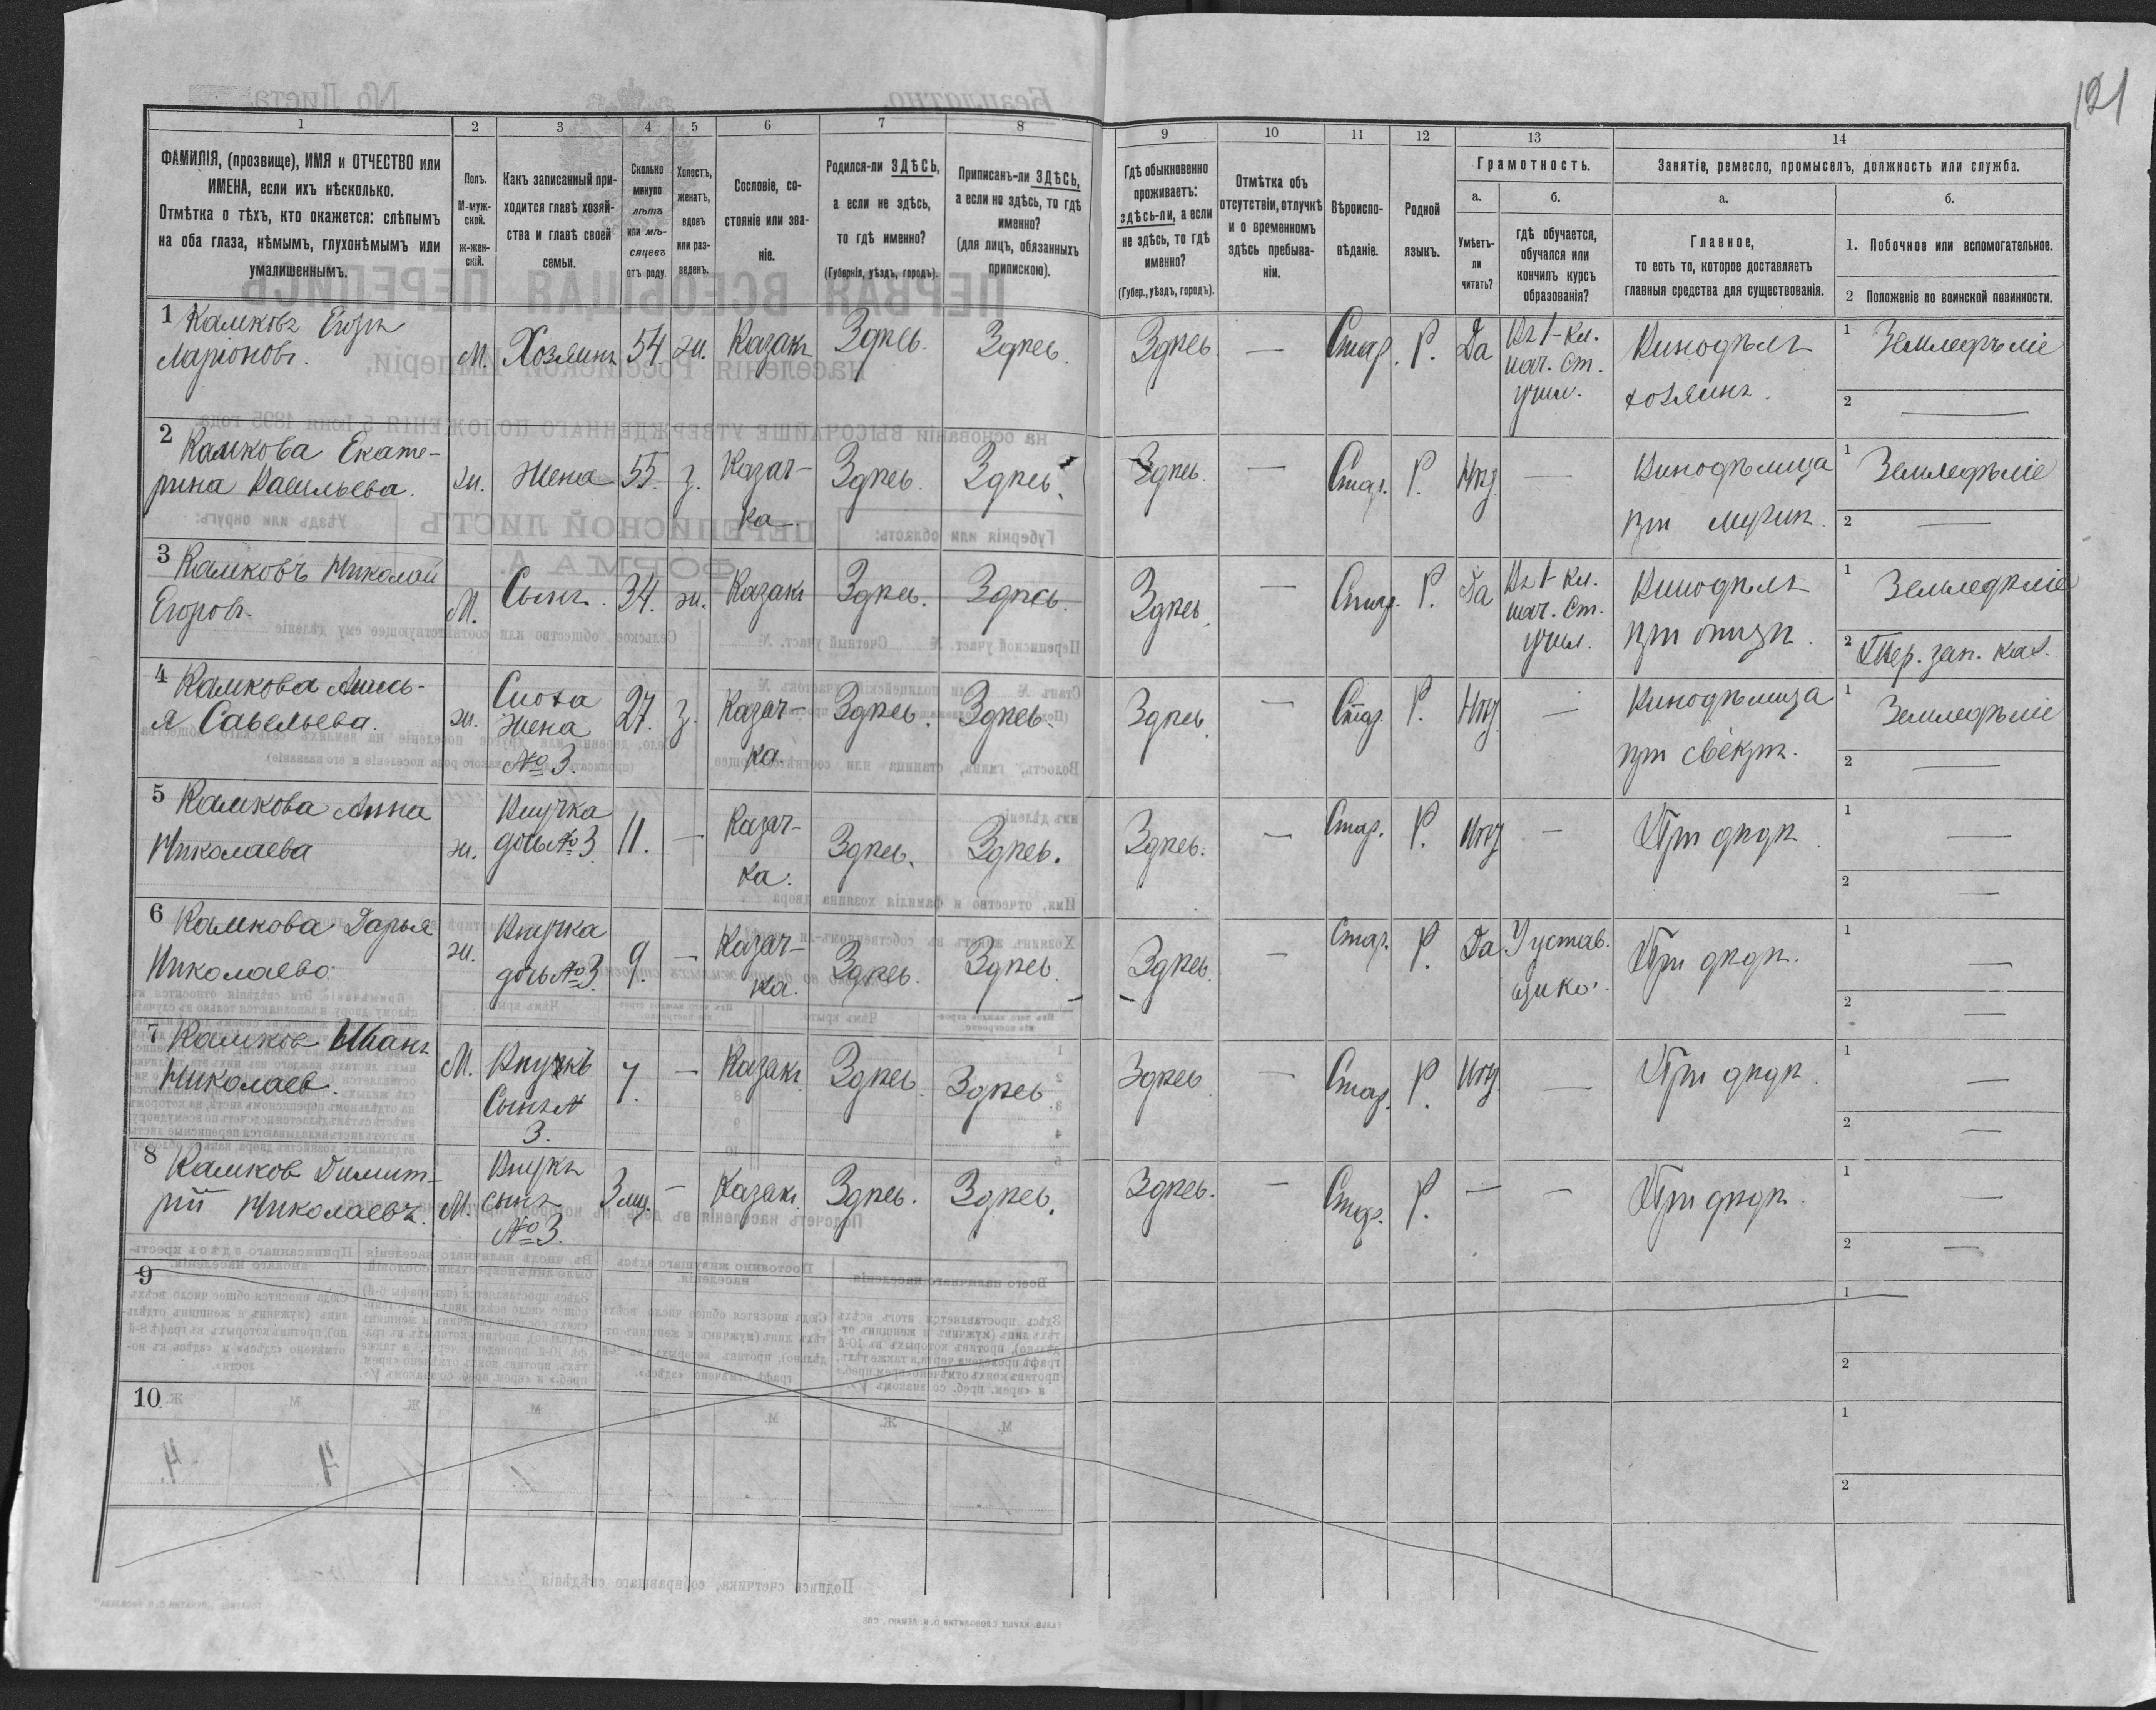 121
1 2 3 4 5 6 7 8 9 10 11 12 13 14
ФАМИЛІЯ, (прозвище), ИМЯ и ОТЧЕСТВО или
ИМЕНА, если ихъ нѣсколько.
Отмѣтка о тѣхъ, кто окажется: слѣпымъ
на оба глаза, нѣмымъ, глухонѣмымъ или
умалишеннымъ.
Полъ.
М-муж-
ской.
ж-жен-
скій.
Какъ записанный при-
ходится главѣ хозяй-
ства и главѣ своей
семьи.
Сколько
минуло
лѣтъ
или мѣ-
сяцевъ
отъ роду.
Холостъ,
женатъ,
вдовъ
или раз-
веденъ.
Сословіе, со-
стояніе или зва-
ніе.
Родился-ли ЗДѢСЬ,
а если не здѣсь,
то гдѣ именно?
(Губернія, уѣздъ, городъ).
Приписанъ-ли ЗДѢСЬ,
а если не здѣсь, то гдѣ
именно?
(для лицъ, обязанныхъ
припискою).
Гдѣ обыкновенно
проживаетъ:
здѣсь-ли, а если
не здѣсь, то гдѣ
именно?
(Губер., уѣздъ, городъ).
Отмѣтка объ
отсутствіи, отлучкѣ
и о временномъ
здѣсь пребыва-
ніи.
Вѣроиспо-
вѣданіе.
Родной
языкъ.
Грамотность.
а.
Умѣетъ-
ли
читать?
б.
гдѣ обучается,
обучался или
кончилъ курсъ
образованія?
Занятіе, ремесло, промыселъ, должность или служба.
а.
Главное,
то есть то, которое доставляетъ
главныя средства для существованія.
б.
1. Побочное или вспомогательное.
2 Положеніе по воинской повинности.
1 Камковъ Егоръ
Ларіоновъ.
М. Хозяинъ 54 ж. Казакъ Здѣсь. Здѣсь. Здѣсь — Стар. Р. Да
Въ 1-кл.
нач. ст.
учил.
Винодѣлъ
хозяинъ.
1 Земледѣліе
2 —
2 Камкова Екате-
рина Васильева.
ж. Жена 55. з. Казач-
ка
Здѣсь. Здѣсь. Здѣсь. — Стар. Р. Нѣт —
Винодѣлица
при мужѣ.
1 Земледѣліе
2 —
3 Камковъ Николай
Егоровъ.
М. Сынъ. 34. ж. Казакъ Здѣсь. Здѣсь. Здѣсь. — Стар. Р. Да
Въ 1-кл.
нач. ст.
учил.
Винодѣлъ
при отцѣ.
1 Земледѣліе
2 Пер. зап. каз.
4 Камкова
я Савельева.
ж. Сноха
Жена
№ 3.
27. з. Казач-
ка.
Здѣсь. Здѣсь. Здѣсь. — Стар. Р. Нѣт —
Винодѣлица
при свекрѣ.
1 Земледѣліе
2 —
5 Камкова Анна
Николаева
ж. Внучка
дочь № 3.
11. — Казач-
ка.
Здѣсь. Здѣсь. Здѣсь. — Стар. Р. Нѣт —
При дѣдѣ.
1 —
2 —
6 Камкова Дарья
Николаева
ж. Внучка
дочь № 3.
9. — Казач-
ка.
Здѣсь. Здѣсь. Здѣсь. — Стар. Р. Да
У устав-
щика.
При дѣдѣ.
1 —
2 —
7 Камков Иванъ
Николаев.
М. Внукъ
Сынъ №
3.
7. — Казакъ Здѣсь. Здѣсь. Здѣсь — Стар. Р. Нѣт —
При дѣдѣ.
1 —
2 —
8 Камков Димит-
рій Николаевъ.
М. Внукъ
сынъ
№ 3.
3 мц. — Казакъ Здѣсь. Здѣсь. Здѣсь. — Стар. Р. — —
При дѣдѣ.
1 —
2 —
9
1
2
10
1
2